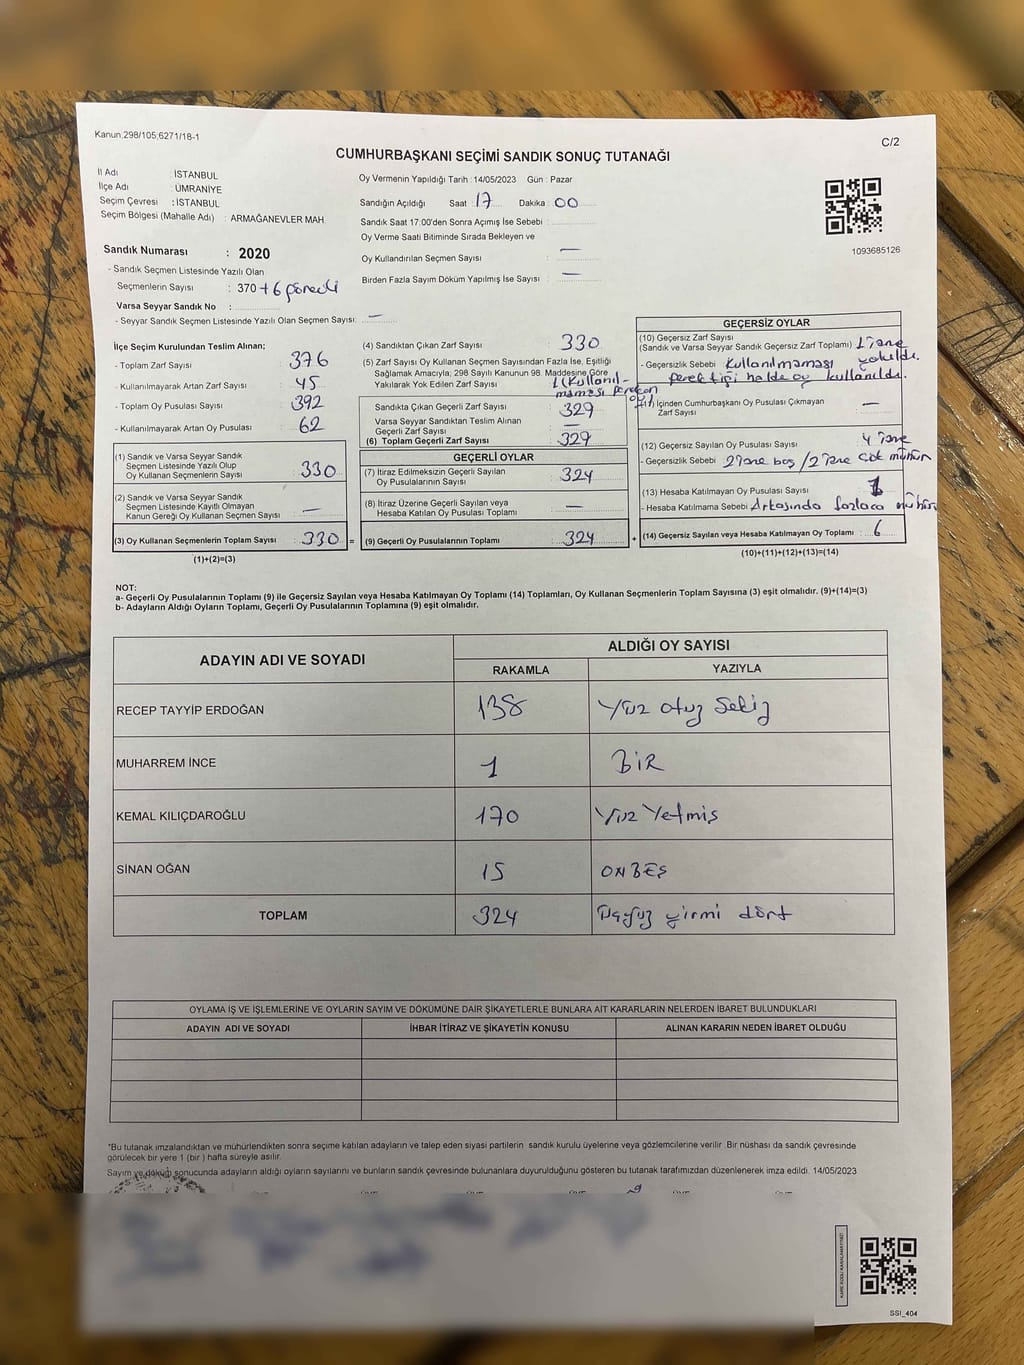 Kanun.298/105;6271/18-1
C/2
CUMHURBAŞKANI SEÇİMİ SANDIK SONUÇ TUTANAĞI
İl Adı : İSTANBUL
İlçe Adı : ÜMRANİYE
Seçim Çevresi : İSTANBUL
Seçim Bölgesi (Mahalle Adı) : ARMAĞANEVLER MAH
Sandık Numarası : 2020
- Sandık Seçmen Listesinde Yazılı Olan
Seçmenlerin Sayısı : 370 +6 görevli
Varsa Seyyar Sandık No :
- Seyyar Sandık Seçmen Listesinde Yazılı Olan Seçmen Sayısı: —
Oy Vermenin Yapıldığı Tarih : 14/05/2023 Gün : Pazar
Sandığın Açıldığı Saat : 17 Dakika : 00
Sandık Saat 17:00'den Sonra Açımış İse Sebebi :
Oy Verme Saati Bitiminde Sırada Bekleyen ve
Oy Kullandırılan Seçmen Sayısı : —
Birden Fazla Sayım Döküm Yapılmış İse Sayısı : —
1093685126
İlçe Seçim Kurulundan Teslim Alınan;
- Toplam Zarf Sayısı : 376
- Kullanılmayarak Artan Zarf Sayısı : 45
- Toplam Oy Pusulası Sayısı : 392
- Kullanılmayarak Artan Oy Pusulası : 62
(1) Sandık ve Varsa Seyyar Sandık
Seçmen Listesinde Yazılı Olup
Oy Kullanan Seçmenlerin Sayısı : 330
(2) Sandık ve Varsa Seyyar Sandık
Seçmen Listesinde Kayıtlı Olmayan
Kanun Gereği Oy Kullanan Seçmen Sayısı : —
(3) Oy Kullanan Seçmenlerin Toplam Sayısı : 330 =
(1)+(2)=(3)
(4) Sandıktan Çıkan Zarf Sayısı : 330
(5) Zarf Sayısı Oy Kullanan Seçmen Sayısından Fazla İse, Eşitliği
Sağlamak Amacıyla; 298 Sayılı Kanunun 98. Maddesine Göre
Yakılarak Yok Edilen Zarf Sayısı : 1 (Kullanıl-
maması gereken
oy)
Sandıkta Çıkan Geçerli Zarf Sayısı : 329
Varsa Seyyar Sandıktan Teslim Alınan
Geçerli Zarf Sayısı : —
(6) Toplam Geçerli Zarf Sayısı : 329
GEÇERLİ OYLAR
(7) İtiraz Edilmeksizin Geçerli Sayılan
Oy Pusulalarının Sayısı : 324
(8) İtiraz Üzerine Geçerli Sayılan veya
Hesaba Katılan Oy Pusulası Toplamı : —
(9) Geçerli Oy Pusulalarının Toplamı : 324 +
GEÇERSİZ OYLAR
(10) Geçersiz Zarf Sayısı
(Sandık ve Varsa Seyyar Sandık Geçersiz Zarf Toplamı) : 1 tane
yakıldı.
- Geçersizlik Sebebi : Kullanılmaması
gerektiği halde oy kullanıldı.
(11) İçinden Cumhurbaşkanı Oy Pusulası Çıkmayan
Zarf Sayısı : —
(12) Geçersiz Sayılan Oy Pusulası Sayısı : 4 tane
- Geçersizlik Sebebi : 2 tane boş / 2 tane çok mühür
(13) Hesaba Katılmayan Oy Pusulası Sayısı : 1
- Hesaba Katılmama Sebebi : Arkasında fazlaca mühür
(14) Geçersiz Sayılan veya Hesaba Katılmayan Oy Toplamı : 6
(10)+(11)+(12)+(13)=(14)
NOT:
a- Geçerli Oy Pusulalarının Toplamı (9) ile Geçersiz Sayılan veya Hesaba Katılmayan Oy Toplamı (14) Toplamları, Oy Kullanan Seçmenlerin Toplam Sayısına (3) eşit olmalıdır. (9)+(14)=(3)
b- Adayların Aldığı Oyların Toplamı, Geçerli Oy Pusulalarının Toplamına (9) eşit olmalıdır.
ADAYIN ADI VE SOYADI ALDIĞI OY SAYISI
RAKAMLA YAZIYLA
RECEP TAYYİP ERDOĞAN 138 Yüz otuz Sekiz
MUHARREM İNCE 1 BİR
KEMAL KILIÇDAROĞLU 170 Yüz Yetmiş
SİNAN OĞAN 15 ONBEŞ
TOPLAM 324 Üçyüz yirmi dört
OYLAMA İŞ VE İŞLEMLERİNE VE OYLARIN SAYIM VE DÖKÜMÜNE DAİR ŞİKAYETLERLE BUNLARA AİT KARARLARIN NELERDEN İBARET BULUNDUKLARI
ADAYIN ADI VE SOYADI İHBAR İTİRAZ VE ŞİKAYETİN KONUSU ALINAN KARARIN NEDEN İBARET OLDUĞU
*Bu tutanak imzalandıktan ve mühürlendikten sonra seçime katılan adayların ve talep eden siyasi partilerin sandık kurulu üyelerine veya gözlemcilerine verilir. Bir nüshası da sandık çevresinde
görülecek bir yere 1 (bir ) hafta süreyle asılır.
Sayım ve döküm sonucunda adayların aldığı oyların sayılarını ve bunların sandık çevresinde bulunanlara duyurulduğunu gösteren bu tutanak tarafımızdan düzenlenerek imza edildi. 14/05/2023
SSI_404